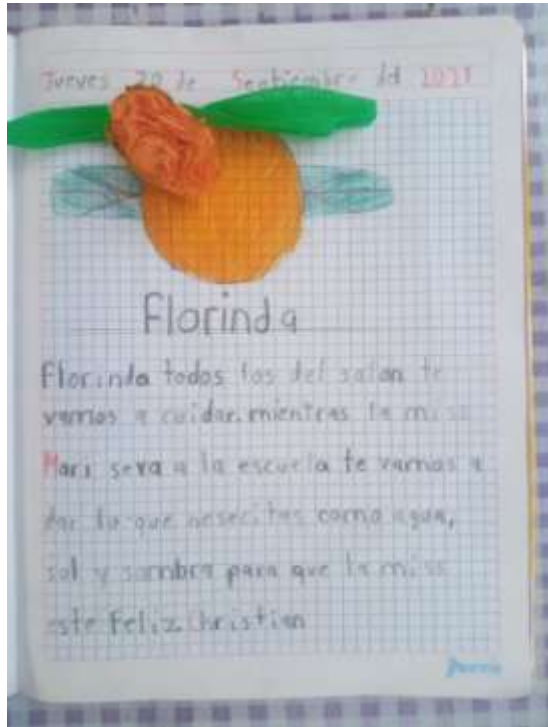 Jueves 30 de Septiembre del 2021
Florinda
Florinda todos los del salon te
vamos a cuidar. mientras la miss
Mari seva a la escuela te vamos a
dar lo que nesecites como agua,
sol y sombra para que la miss
este Feliz. Christian